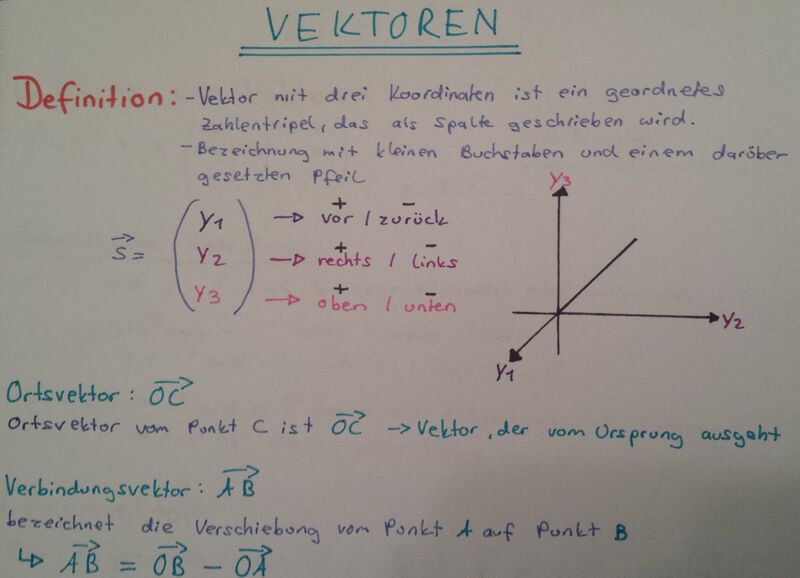 VEKTOREN
Definition: - Vektor mit drei Koordinaten ist ein geordnetes
Zahlentripel, das als Spalte geschrieben wird.
- Bezeichnung mit kleinen Buchstaben und einem darüber
gesetzten Pfeil
y3
+ −
y1 → vor / zurück
s⃗ =
+ −
y2 → rechts / links
+ −
y3 → oben / unten
y2
y1
Ortsvektor: OC→
Ortsvektor vom Punkt C ist OC→ → Vektor, der vom Ursprung ausgeht
Verbindungsvektor: AB→
bezeichnet die Verschiebung vom Punkt A auf Punkt B
↳ AB→ = OB→ − OA→